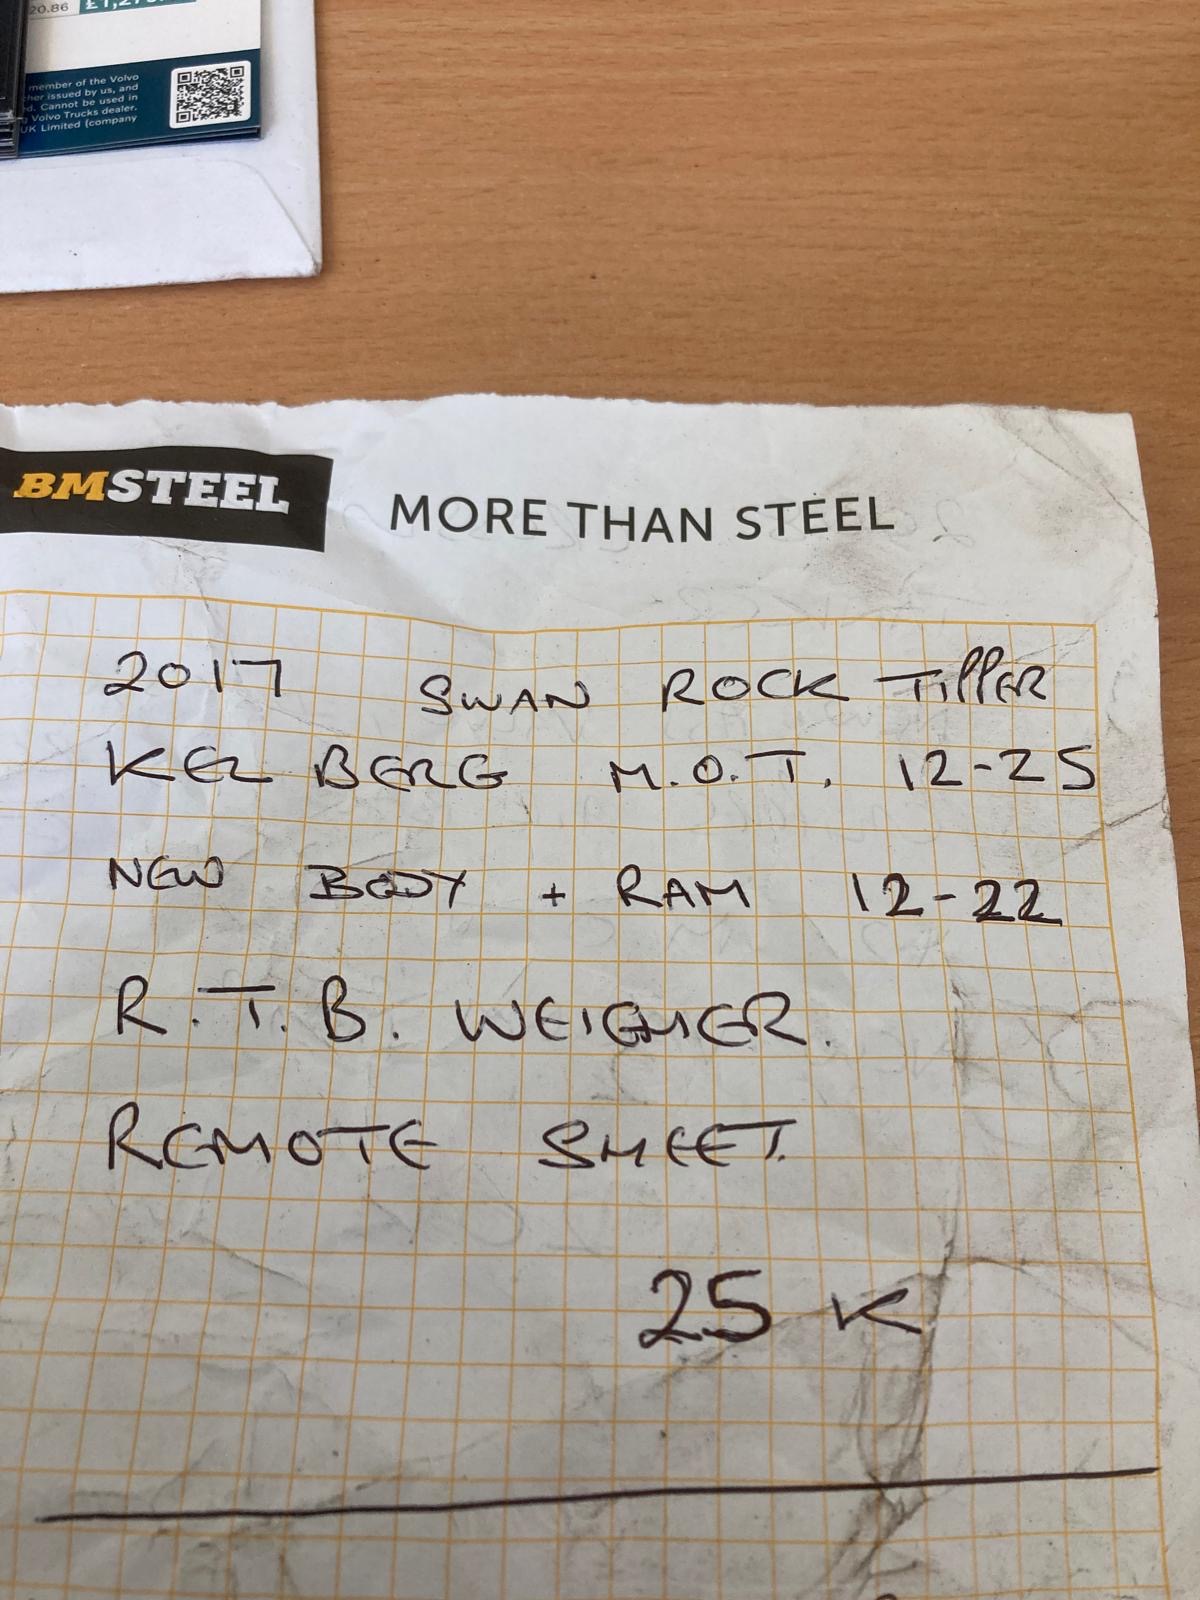 20.86 £1,27
member of the Volvo
her issued by us, and
d. Cannot be used in
Volvo Trucks dealer.
UK Limited (company
BMSTEEL MORE THAN STEEL
2017 SWAN ROCK TIPPER
KEL BERG M.O.T. 12-25
NEW BODY + RAM 12-22
R.T.B. WEIGHER.
REMOTE SHEET.
25 K